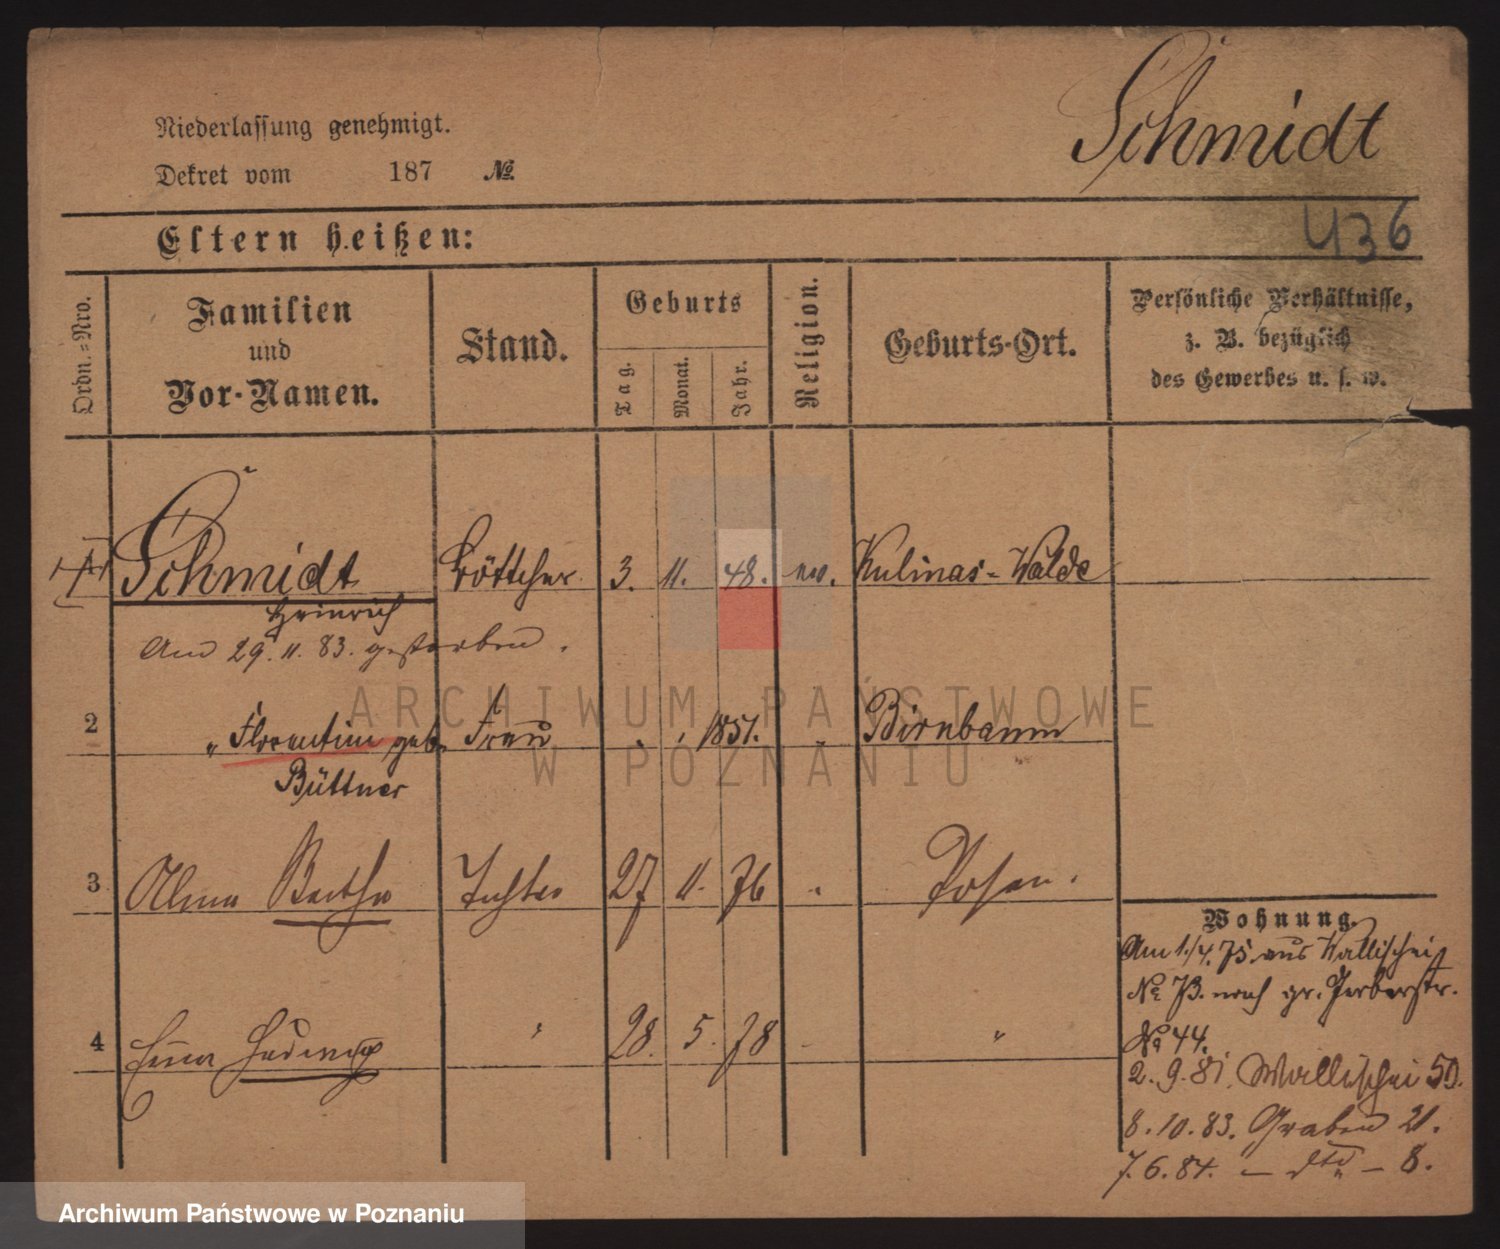 Schmidt
Niederlassung genehmigt.
Dekret vom 187 №.
436
Eltern heißen:
Ordn.=Nro.
Familien
und
Vor-Namen.
Stand.
Geburts
Tag.
Monat.
Jahr.
Religion.
Geburts-Ort.
Persönliche Verhältnisse,
z. B. bezüglich
des Gewerbes u. s. w.
Schmidt Böttcher. 3. 11. 48. ev. Kulinas-Walde
Heinrich
Am 29. 11. 83. gestorben.
2 " Florentine geb. Frau 1851. " Birnbaum
Büttner
3 Alma Bertha Tochter 27 11. 76 " Posen.
4 Hedwig " 28. 5. 78 "
Wohnung.
Am 1./4. 75. aus Wallischei
№ 73. nach gr. Gerberstr.
№ 44.
2. 9. 81. Wallischei 50.
8. 10. 83. Graben 21.
7. 6. 84. — dto — 8.
ARCHIWUM PAŃSTWOWE
W POZNANIU
Archiwum Państwowe w Poznaniu